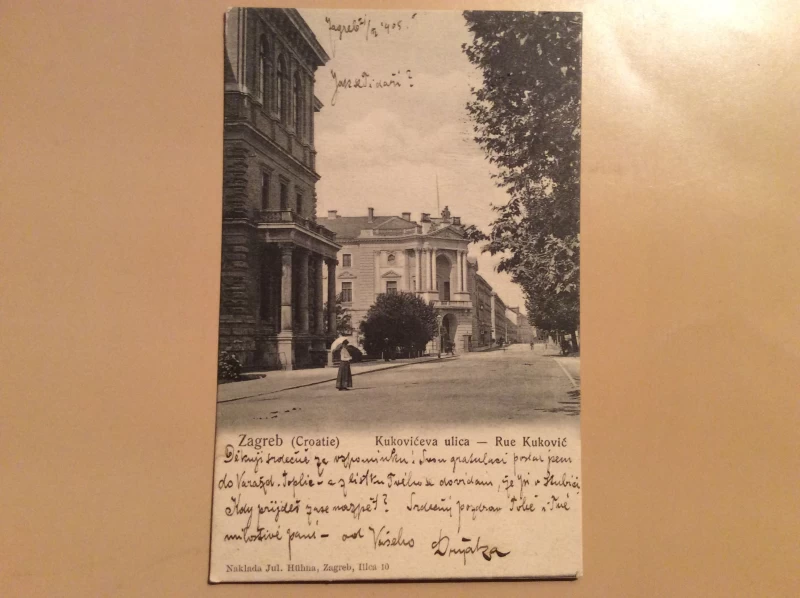 Zagreb 1/IX 1905.
Jak se Ti daří?
Zagreb (Croatie) Kukovićeva ulica — Rue Kuković
Děkuji srdečně za vzpomínku! Svou gratulaci poslal jsem
do Varažd. Toplic – a z lístku Tvého se dovídám, že jsi v Stubici
Kdy přijdeš zase nazpět? Srdečný pozdrav Tobě i Tvé
milostivé paní – od Vašeho
Naklada Jul. Hühna, Zagreb, Ilica 10